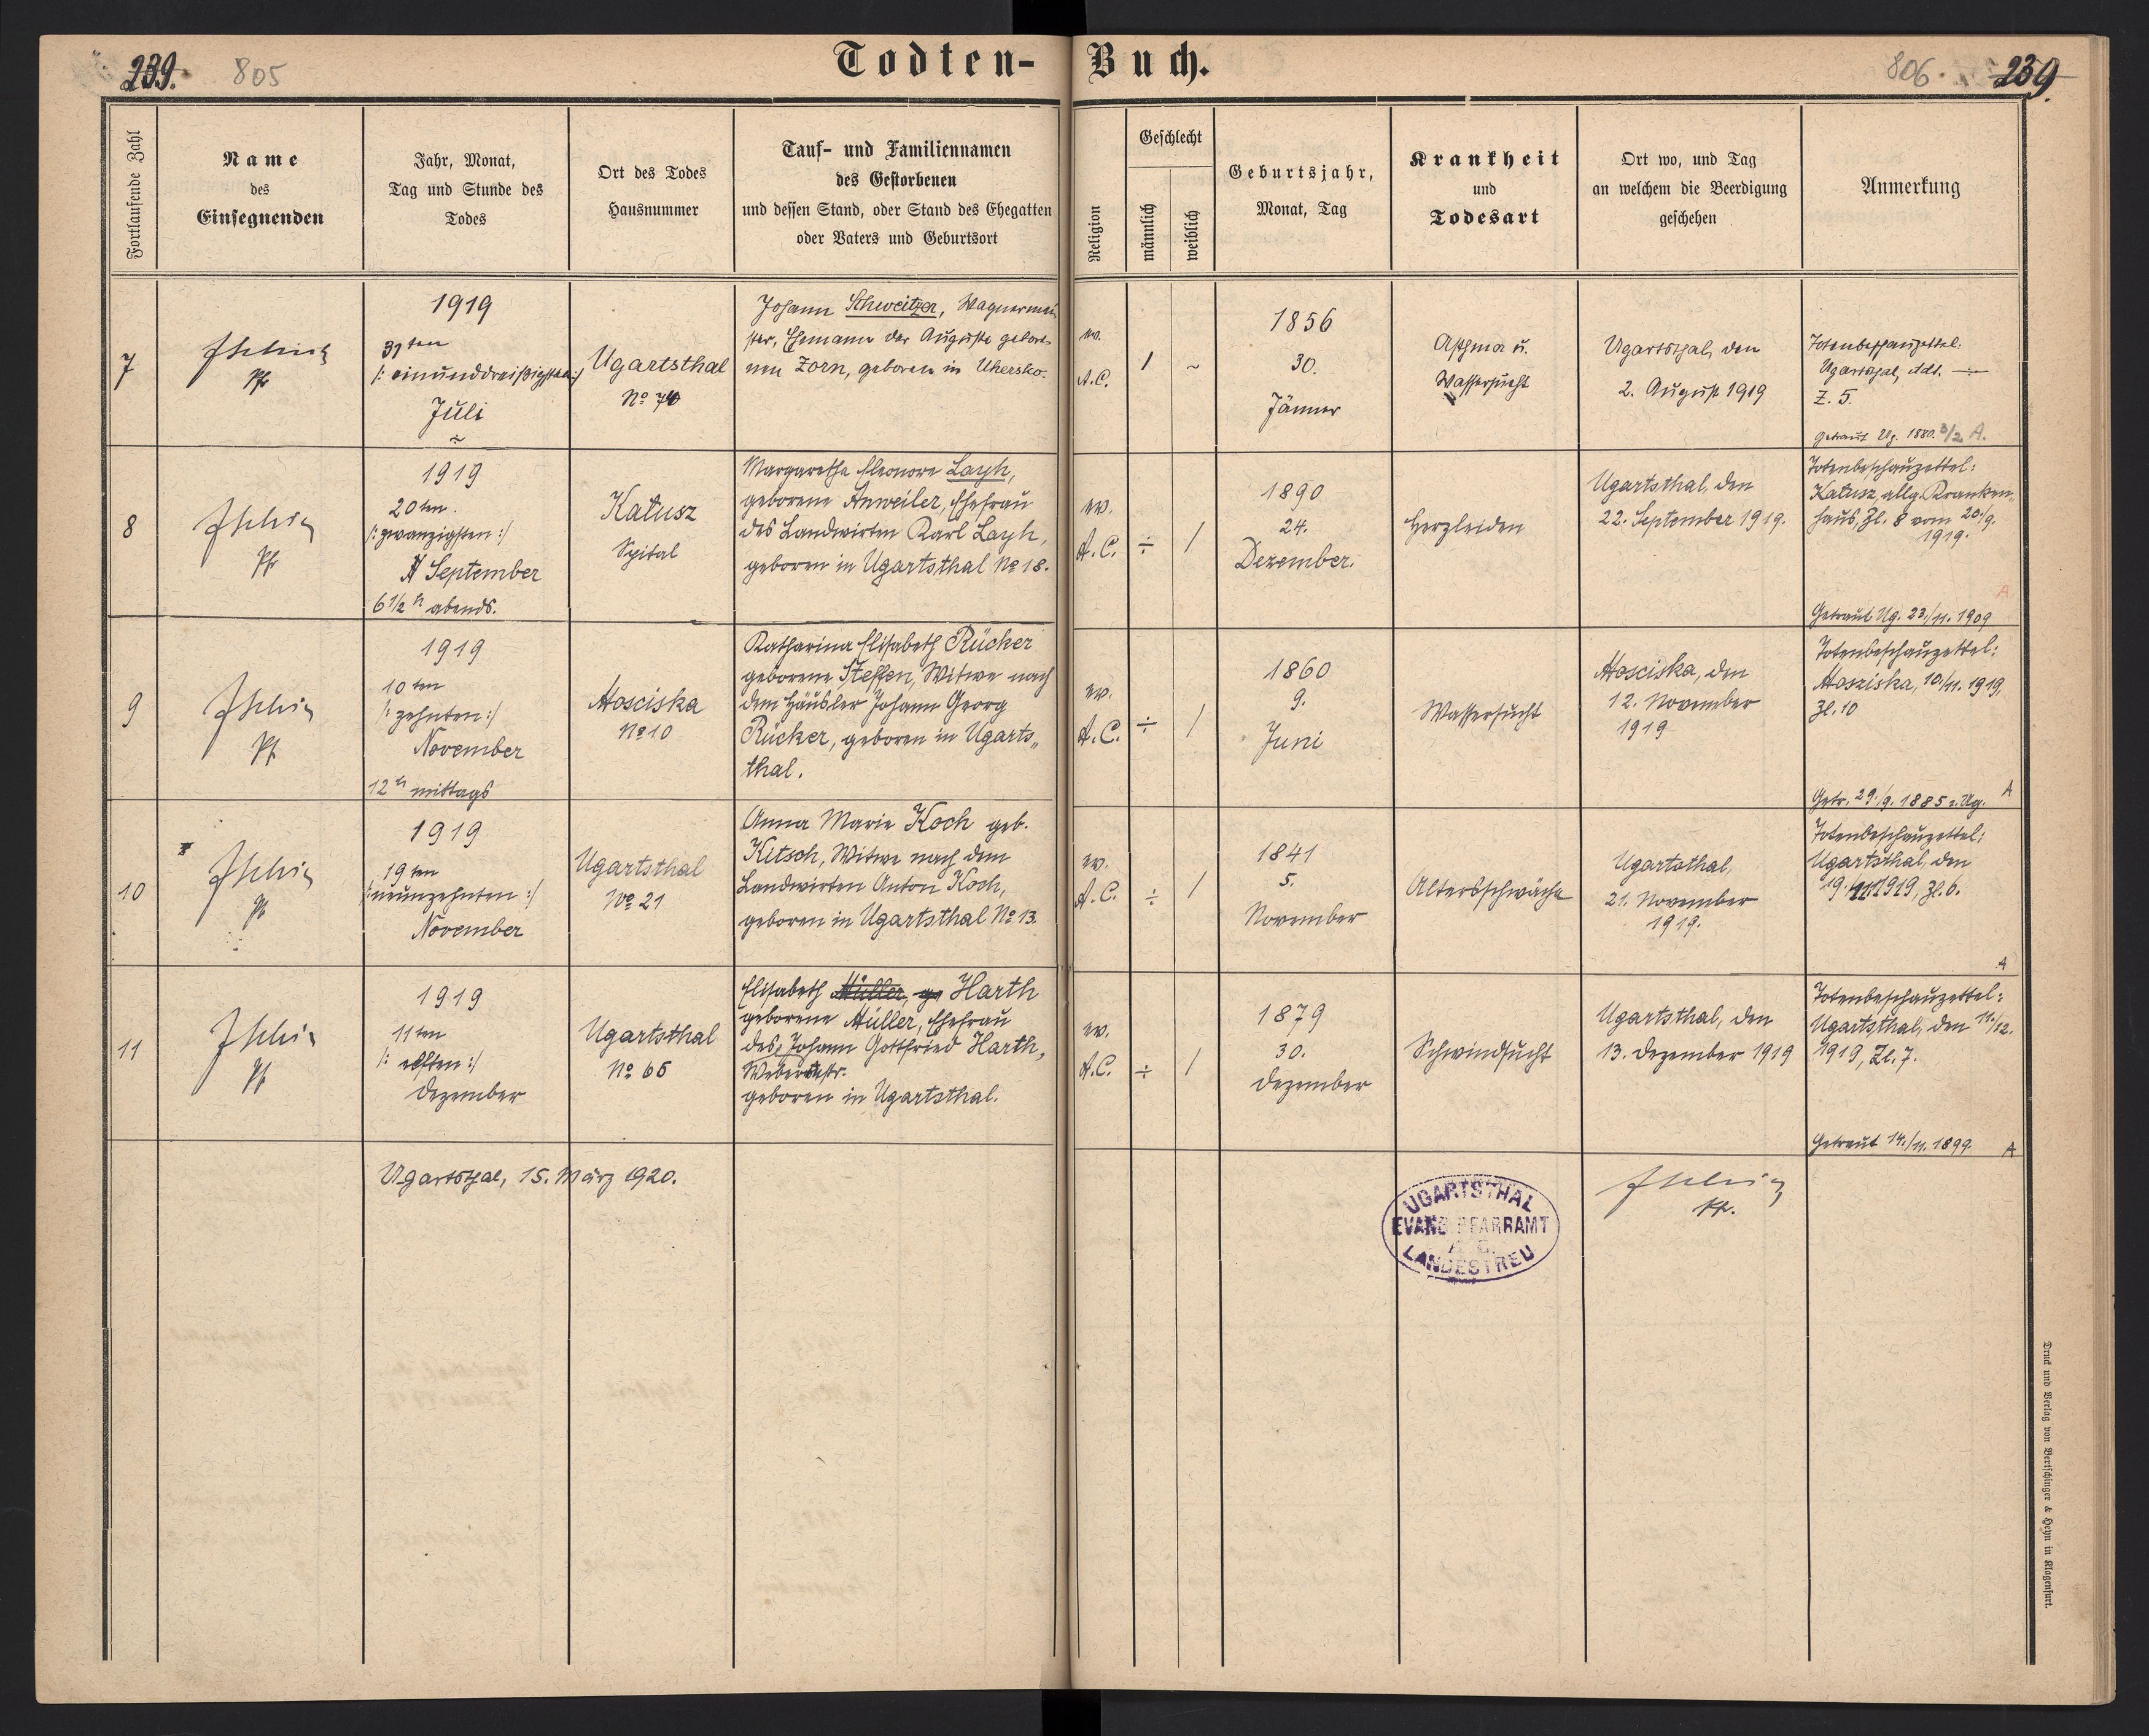 Todten-Buch.
239. 805
806. 239.
Fortlaufende Zahl
Name
des
Einsegnenden
Jahr, Monat,
Tag und Stunde des
Todes
Ort des Todes
Hausnummer
Tauf- und Familiennamen
des Gestorbenen
und dessen Stand, oder Stand des Ehegatten
oder Vaters und Geburtsort
Religion
Geschlecht
männlich
weiblich
Geburtsjahr,
Monat, Tag
Krankheit
und
Todesart
Ort wo, und Tag
an welchem die Beerdigung
geschehen
Anmerkung
7
Pfr
1919
31ten
/: einunddreißigsten :/
Juli
Ugartsthal
No 74
Johann Schweitzer, Wagnermei
ster, Ehemann der Auguste gebore-
nen Zorn, geboren in Uhersko.
ev.
A.C.
/
~
1856
30.
Jänner
Asthma u.
Wassersucht
Ugartsthal, den
2. August 1919
Totenbeschauzettel:
Ugartsthal, ddt. —
Z. 5.
Getraut Ug. 1880. 3/2 A.
8
Pfr
1919
20ten.
/: zwanzigsten :/
September
6 1/2 h abends.
Katusz
Spital
Margaretha Eleonore Layh,
geborene Anweiler, Ehefrau
des Landwirten Karl Layh,
geboren in Ugartsthal No 18.
ev.
A.C.
÷
/
1890
24.
Dezember.
Herzleiden
Ugartsthal, den
22. September 1919.
Totenbeschauzettel:
Katusz, allg. Kranken„
haus, Zl. 8 vom 20./9.
1919.
A
Getraut Ug. 23./11. 1909
9
Pf
1919
10ten
/: zehnten :/
November
12 h mittags
Mosciska
No 10
Katharina Elisabeth Rücker
geborene Steffen, Witwe nach
dem Häusler Johann Georg
Rücker, geboren in Ugarts„
thal.
ev.
A.C.
÷
/
1860
9.
Juni
Wassersucht
Mosciska, den
12. November
1919
Totenbeschauzettel:
Mosziska, 10./11. 1919,
Zl. 10
Getr. 29./9. 1885 z. Ug. A
10
Pf
1919
19ten
/: neunzehnten :/
November
Ugartsthal
No 21
Anna Marie Koch geb.
Kitsch, Witwe nach dem
Landwirten Anton Koch,
geboren in Ugartsthal No 13.
ev.
A.C.
÷
/
1841
5.
November
Altersschwäche
Ugartsthal,
21. November
1919.
Totenbeschauzettel:
Ugartsthal, den
19./11 1919, Zl. 6.
A
11
Pf
1919
11ten
/: elften :/
Dezember
Ugartsthal
No 65
Elisabeth Müller, ge Harth
geborene Müller, Ehefrau
des Johann Gottfried Harth,
Webermstr.
geboren in Ugartsthal.
ev.
A.C.
÷
/
1879
30.
Dezember
Schwindsucht
Ugartsthal, den
13. Dezember 1919
Totenbeschauzettel:
Ugartsthal, den 11./12.
1919, Zl. 7.
Getraut 14./11. 1899. A
Ugartsthal, 15. März 1920.
UGARTSTHAL
EVANG. PFARRAMT
A. C.
LANDESTREU
Druck und Verlag von Bertschinger & Heyn in Klagenfurt.